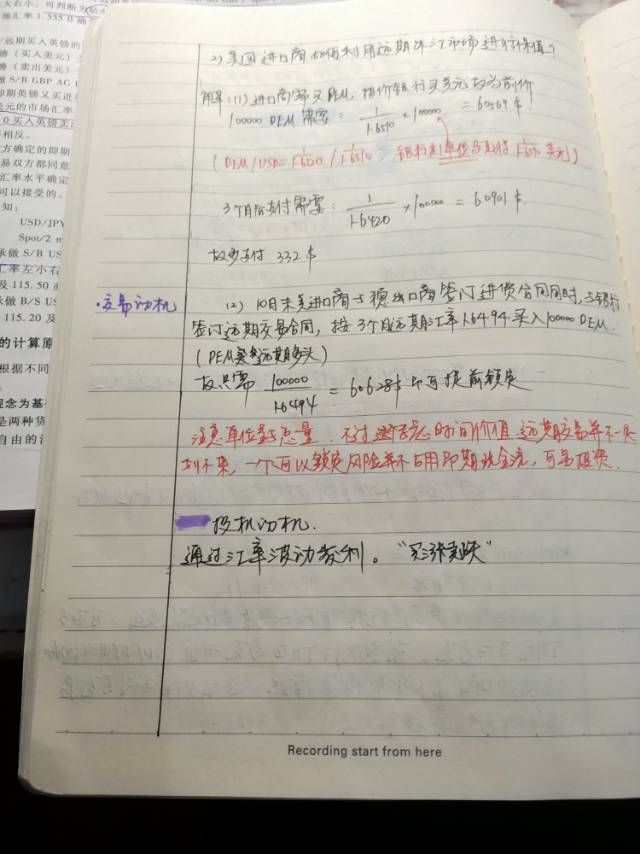 大右小,可判断为
率 1.555 0 确
远期买入英镑的
(买入美元)
(卖出美元)
做 S/B GBP AG
即期英镑又买进
美元的市场汇率
0 买入英镑卖出
相反。
方确定的即期
易双方都同意
汇率水平确定
可以接受的。
知:
USD/JPY
Spot/2 m
承做 S/B US
汇率左小右
及 115.50
承做 B/S US
115.20 及
的计算原
根据不同
观念为基
是两种货
自由的
2) 美国进口商如何利用远期外汇市场进行保值?
解:(1) 进口商需买 DEM,
100000 DEM 需要: 1/1.6510 × 100000 = 60569 $
(DEM/USD = 1/1.6520 / 1/1.6510, 银行每单位马克付 美元)
3个月后支付需要: 1/1.6420 × 100000 = 60901 $
故多支付 332 $
·交易动机
(2) 10月末美进口商与德出口商签订进货合同同时,与银行
签订远期交易合同, 按3个月远期汇率 1.6494 买入 100000 DEM.
(DEM 远期多头)
故只需 100000/1.6494 = 60628 $ 即可提前锁定
注意单位与总量. 不过 考虑时间价值 远期交易并不一定
划不来, 一个可以锁定风险并不占用即期现金流, 可另投资.
投机动机.
通过汇率波动获利。“买涨卖跌”
Recording start from here